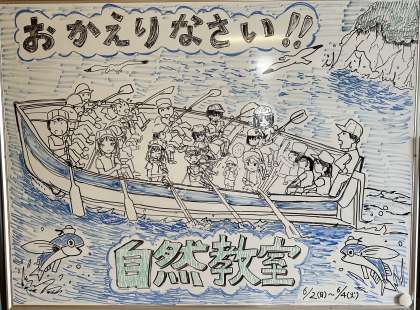 おかえりなさい!!
自然教室
6/2(月)～6/4(水)